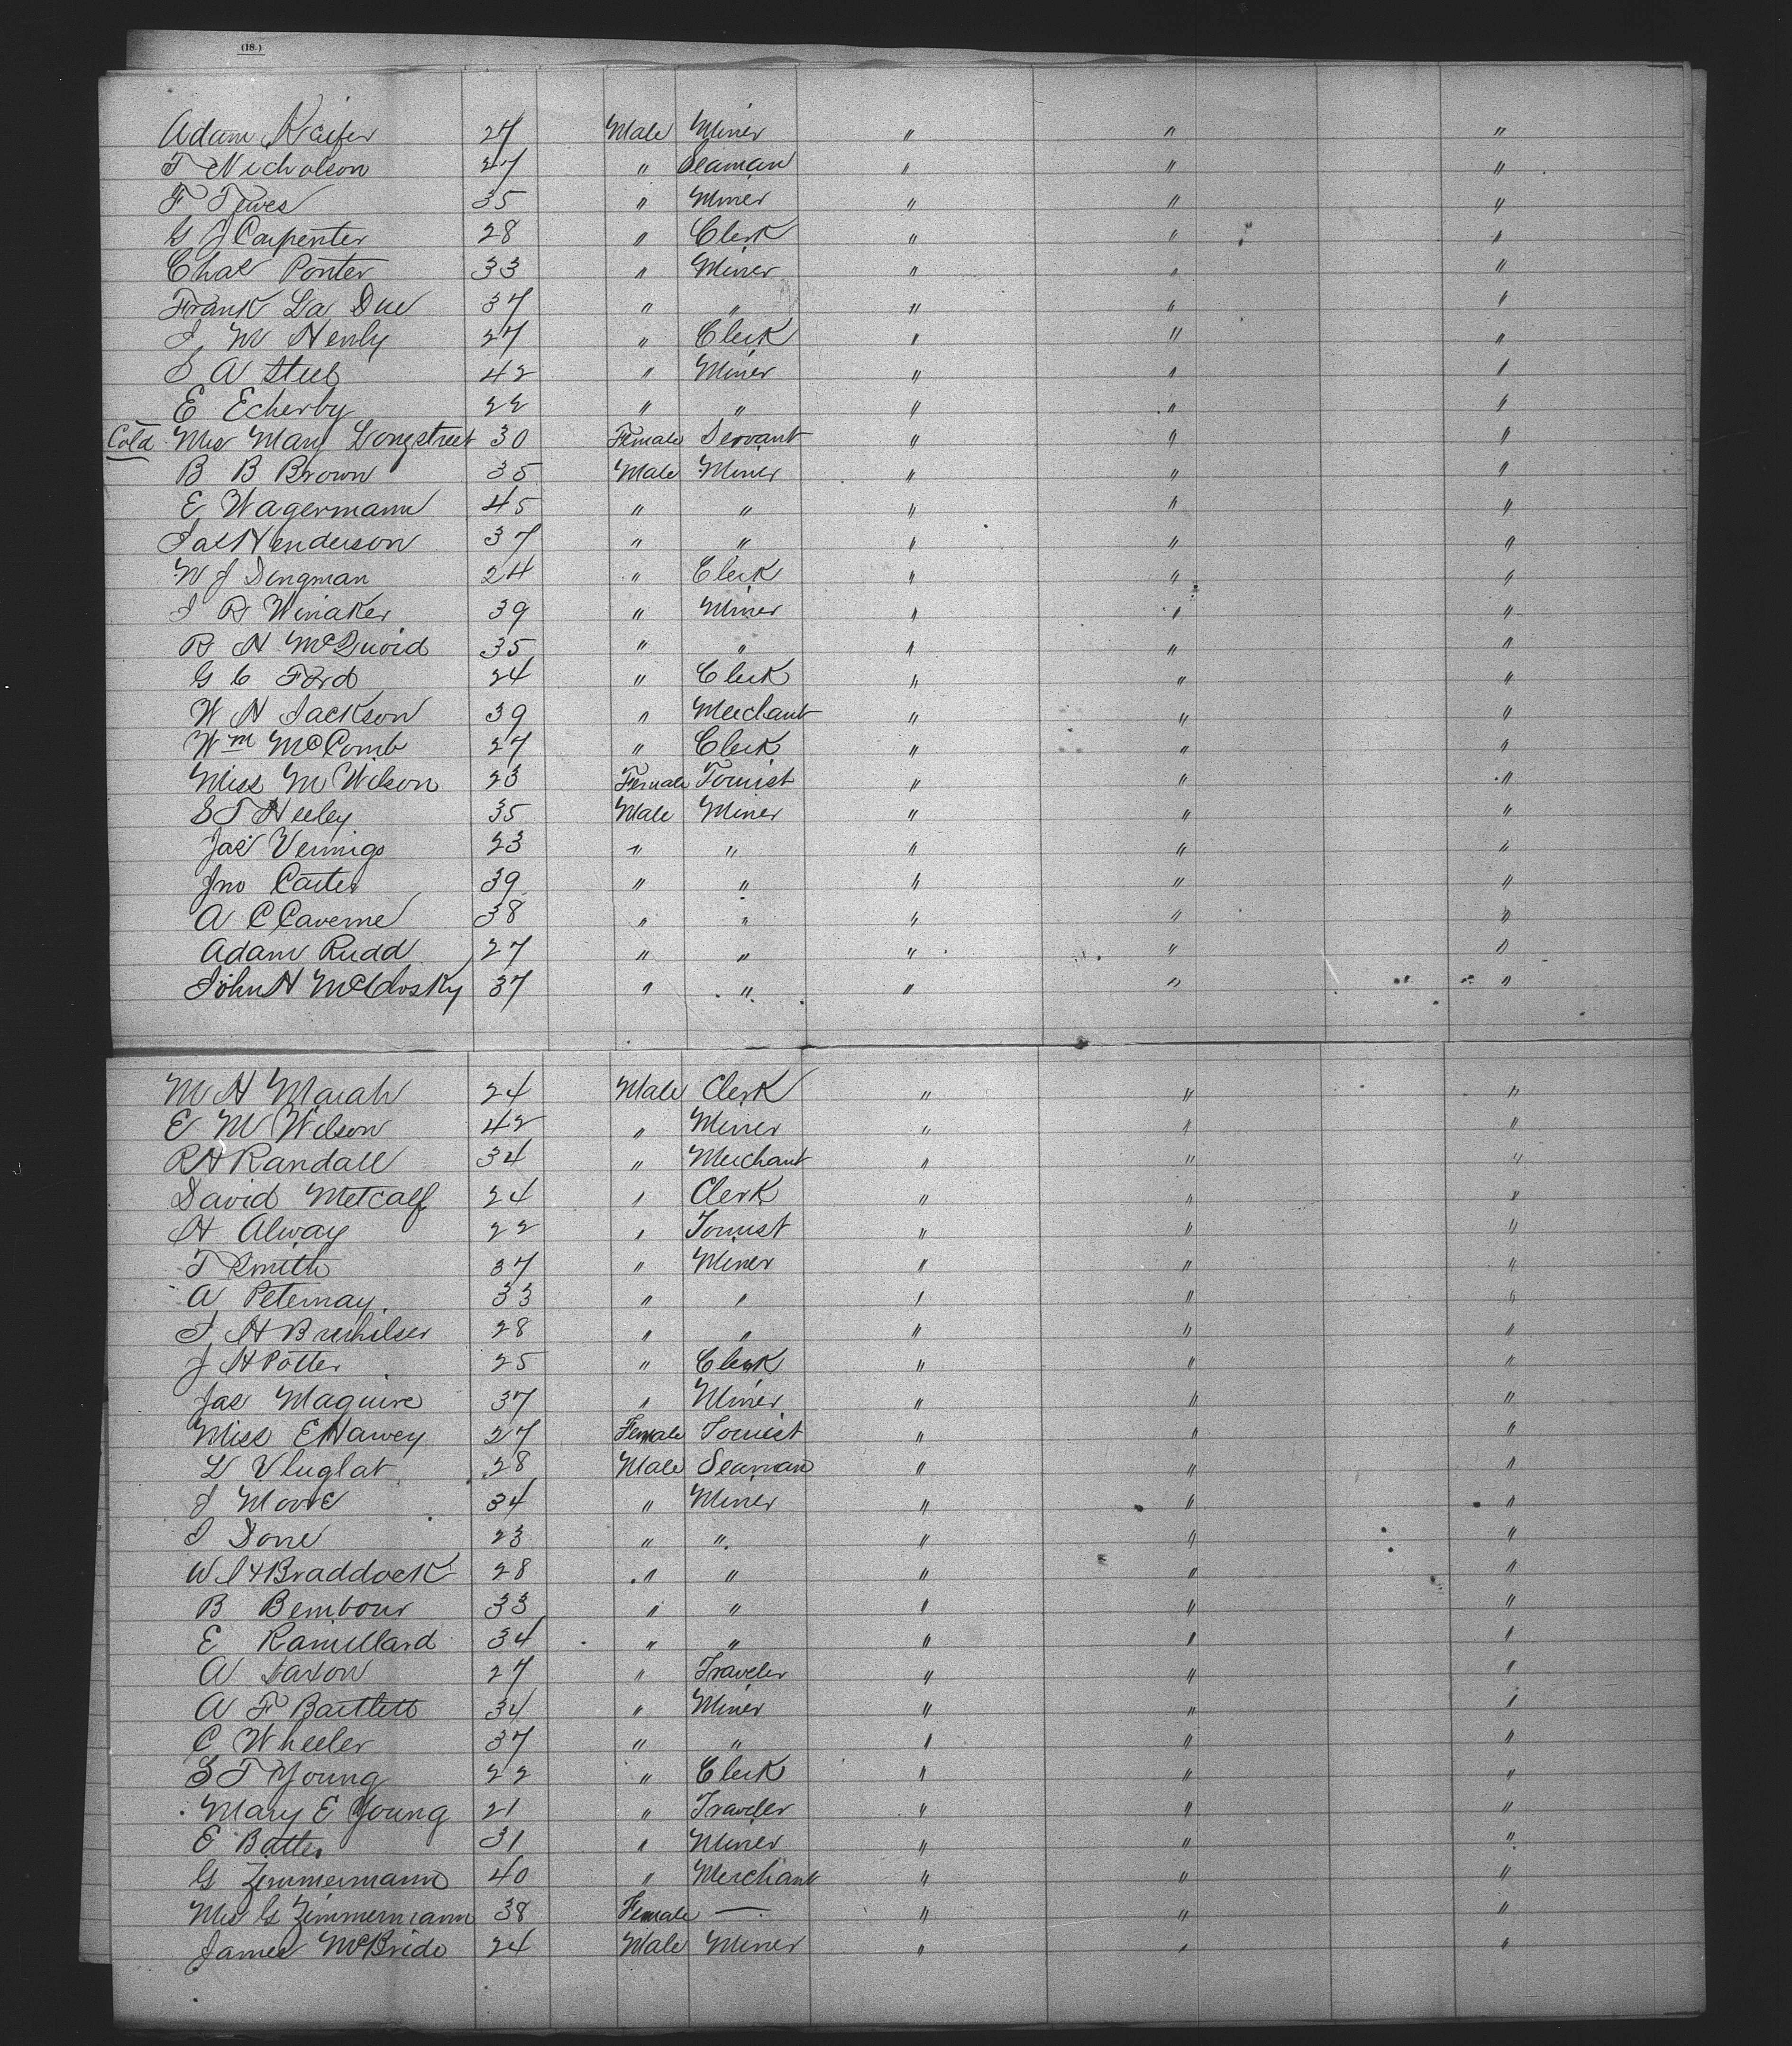 (18.)
Adam Kaifer 27 Male Miner " " "
T Nicholson 27 " Seaman " " "
F Tewes 35 " Miner " " "
G J Carpenter 28 " Clerk " " "
Chas Ponter 33 " Miner " " "
Frank La Due 37 " " " " "
J M Henly 27 " Clerk " " "
S A Steel 42 " Miner " " "
E Echerby 22 " " " " "
Cold Mrs Mary Longstreet 30 Female Servant " " "
B B Brown 35 Male Miner " " "
E Wagermann 45 " " " " "
Jas Henderson 37 " " " " "
W J Dingman 24 " Clerk " " "
J R Winaker 39 " Miner " " "
R H McQuoid 35 " " " " "
G C Ford 24 " Clerk " " "
W H Jackson 39 " Merchant " " "
Wm McComb 27 " Clerk " " "
Miss M Wilson 23 Female Tourist " " "
S T Neeley 35 Male Miner " " "
Jas 23 " " " " "
Jno Carter 39 " " " " "
A C Caverne 38 " " " " "
Adam Rudd 27 " " " " "
John H McClosky 37 " " " " "
M H Marah 24 Male Clerk " " "
E M Wilson 42 " Miner " " "
R H Randall 34 " Merchant " " "
David Metcalf 24 " Clerk " " "
H Alway 22 " Tourist " " "
T Smith 37 " Miner " " "
A Peternay 33 " " " " "
J H 28 " " " " "
J H Potter 25 " Clerk " " "
Jas Maguire 37 " Miner " " "
Miss E Harvey 27 Female Tourist " " "
L Vluglat 28 Male Seaman " " "
J Moore 34 " Miner " " "
J Done 23 " " " " "
W H Braddock 28 " " " " "
B Bembour 33 " " " " "
E Ramillard 34 " " " " "
A Saxon 27 " Traveler " " "
A F Bartlett 34 " Miner " " "
C Wheeler 37 " " " " "
S T Young 22 " Clerk " " "
Mary E Young 21 " Traveler " " "
E Batter 31 " Miner " " "
G Zimmermann 40 " Merchant " " "
Mrs G Zimmermann 38 Female — " " "
James McBride 24 Male Miner " " "